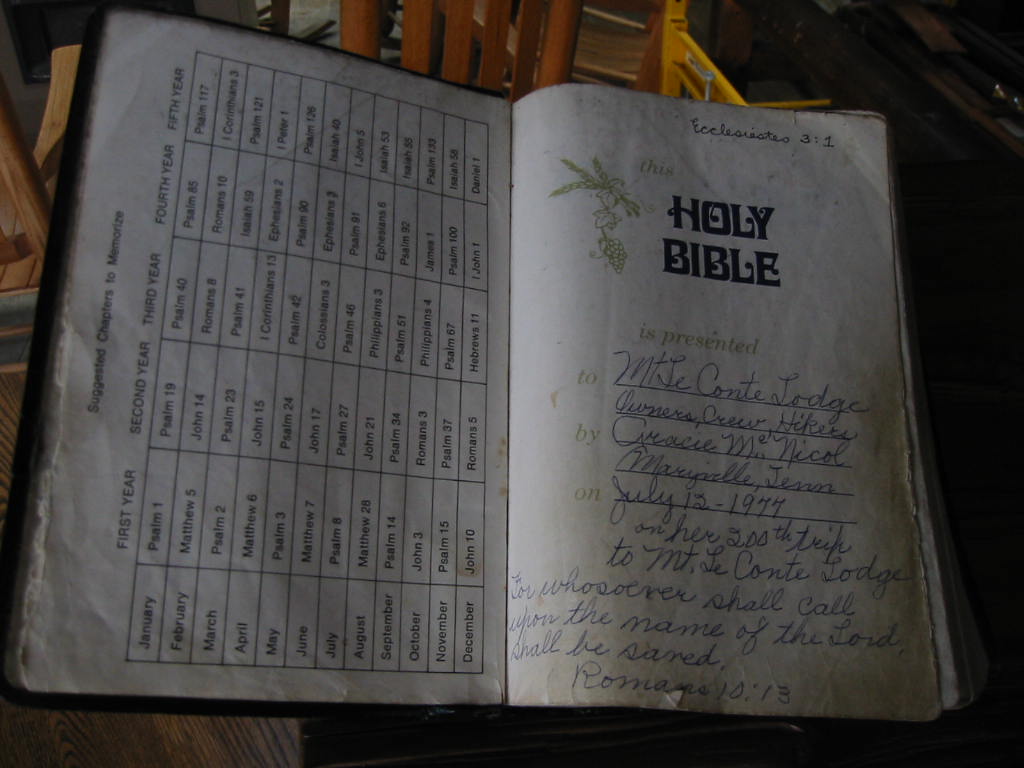 Suggested Chapters to Memorize
FIRST YEAR SECOND YEAR THIRD YEAR FOURTH YEAR FIFTH YEAR
January Psalm 1 Psalm 19 Psalm 40 Psalm 85 Psalm 117
February Matthew 5 John 14 Romans 8 Romans 10 I Corinthians 3
March Psalm 2 Psalm 23 Psalm 41 Isaiah 59 Psalm 121
April Matthew 6 John 15 I Corinthians 13 Ephesians 2 I Peter 1
May Psalm 3 Psalm 24 Psalm 42 Psalm 90 Psalm 126
June Matthew 7 John 17 Colossians 3 Ephesians 3 Isaiah 40
July Psalm 8 Psalm 27 Psalm 46 Psalm 91 I John 5
August Matthew 28 John 21 Philippians 3 Ephesians 6 Isaiah 53
September Psalm 14 Psalm 34 Psalm 51 Psalm 92 Isaiah 55
October John 3 Romans 3 Philippians 4 James 1 Psalm 133
November Psalm 15 Psalm 37 Psalm 67 Psalm 100 Isaiah 58
December John 10 Romans 5 Hebrews 11 I John 1 Daniel 1
Ecclesiastes 3:1
this
HOLY
BIBLE
is presented
to Mt. Le Conte Lodge
Owners, Crew, Hikers
by Gracie Mc Nicol
Maryville, Tenn
on July 12-1977
on her 200th trip
to Mt. Le Conte Lodge
For whosoever shall call
upon the name of the Lord,
shall be saved.
Romans 10:13